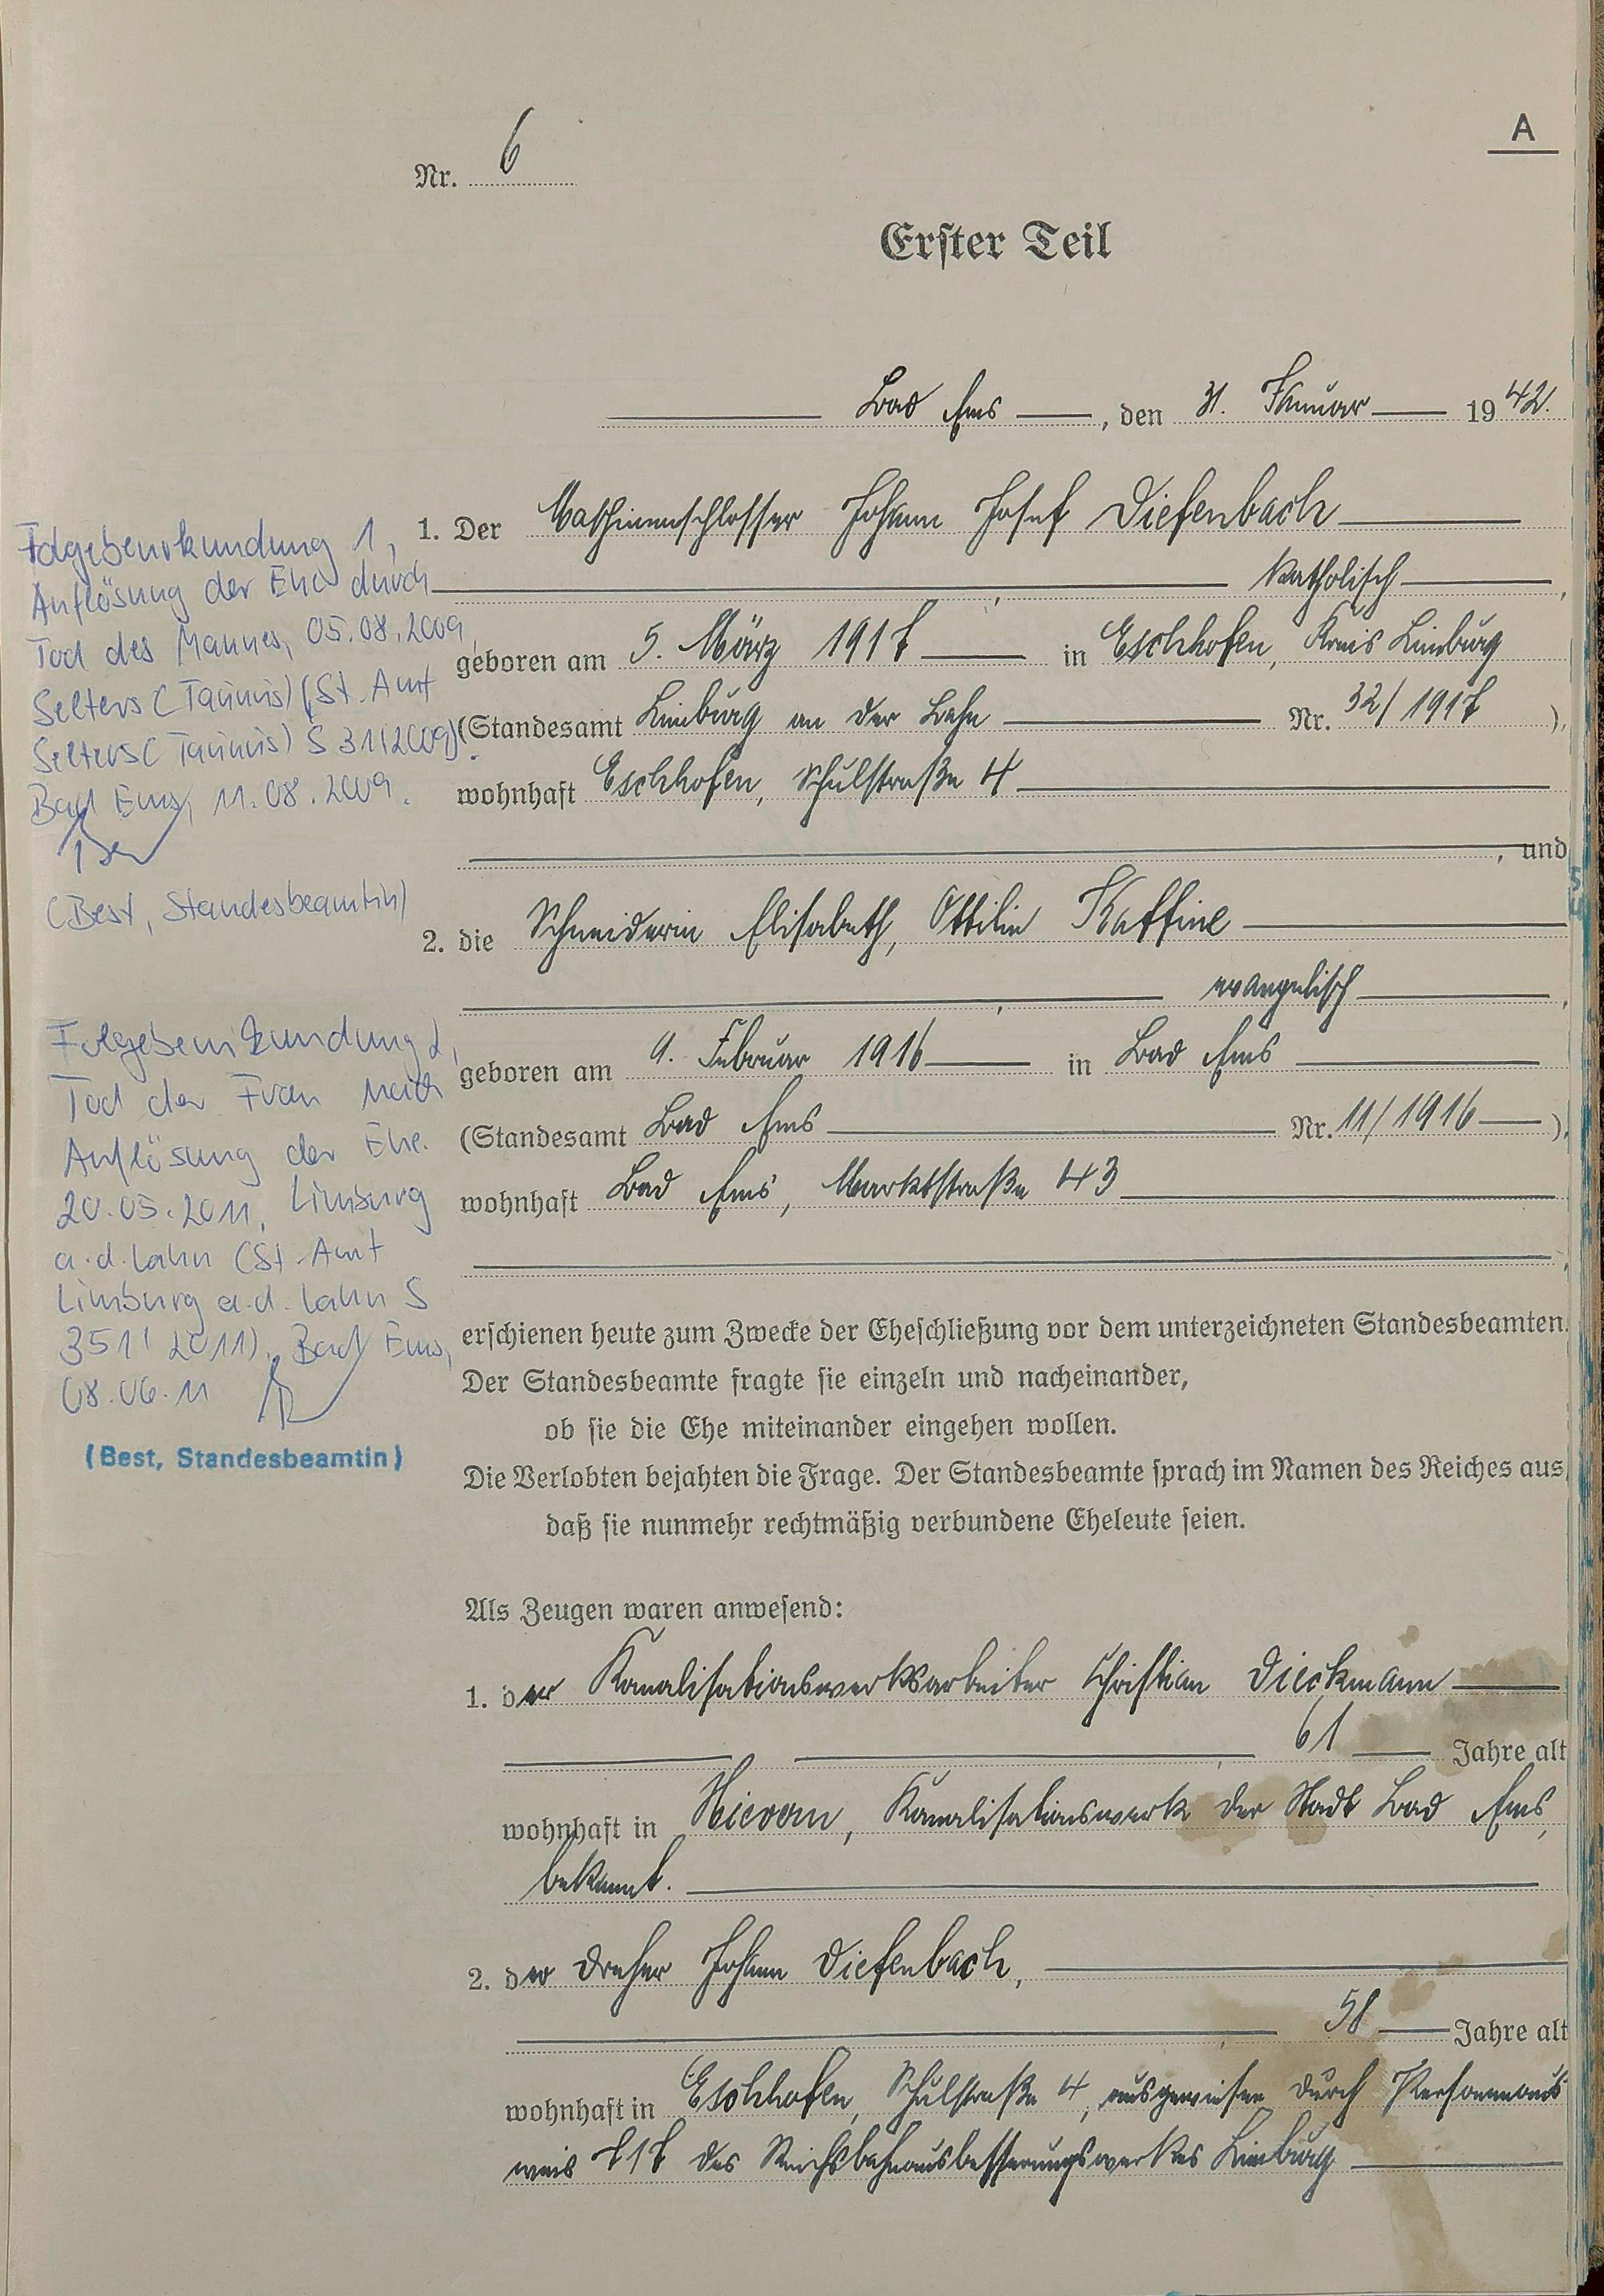 A
Nr. 6
Erster Teil
Bad Ems, den 31. Januar 1942.
1. Der Maschinenschlosser Johann Josef Diefenbach
katholisch,
geboren am 5. März 1917 in Eschhofen, Kreis Limburg
(Standesamt Limburg an der Lahn Nr. 32/1917),
wohnhaft Eschhofen, Schulstraße 4
, und
2. die Schneiderin Elisabeth, Ottilie Kaffine
evangelisch,
geboren am 9. Februar 1916 in Bad Ems
(Standesamt Bad Ems Nr. 11/1916),
wohnhaft Bad Ems, Marktstraße 43
erschienen heute zum Zwecke der Eheschließung vor dem unterzeichneten Standesbeamten.
Der Standesbeamte fragte sie einzeln und nacheinander,
ob sie die Ehe miteinander eingehen wollen.
Die Verlobten bejahten die Frage. Der Standesbeamte sprach im Namen des Reiches aus,
daß sie nunmehr rechtmäßig verbundene Eheleute seien.
Als Zeugen waren anwesend:
1. der Kanalisationswerksarbeiter Christian Dieckmann
61 Jahre alt
wohnhaft in Nievern, Kanalisationswerk der Stadt Bad Ems,
bekannt.
2. der Dreher Johann Diefenbach,
58 Jahre alt
wohnhaft in Eschhofen, Schulstraße 4, ausgewiesen durch Personenaus
weis 717 des Reichsbahnausbesserungswerkes Limburg
Folgebeurkundung 1,
Auflösung der Ehe durch
Tod des Mannes, 05.08.2009,
Selters (Taunus) (St. Amt
Selters (Taunus) S 31/2009).
Bad Ems, 11.08.2009.
(Best, Standesbeamtin)
Folgebeurkundung 2,
Tod der Frau nach
Auflösung der Ehe.
20.05.2011, Limburg
a.d. Lahn (St.-Amt
Limburg a.d. Lahn S
351/2011). Bad Ems,
08.06.11
(Best, Standesbeamtin)